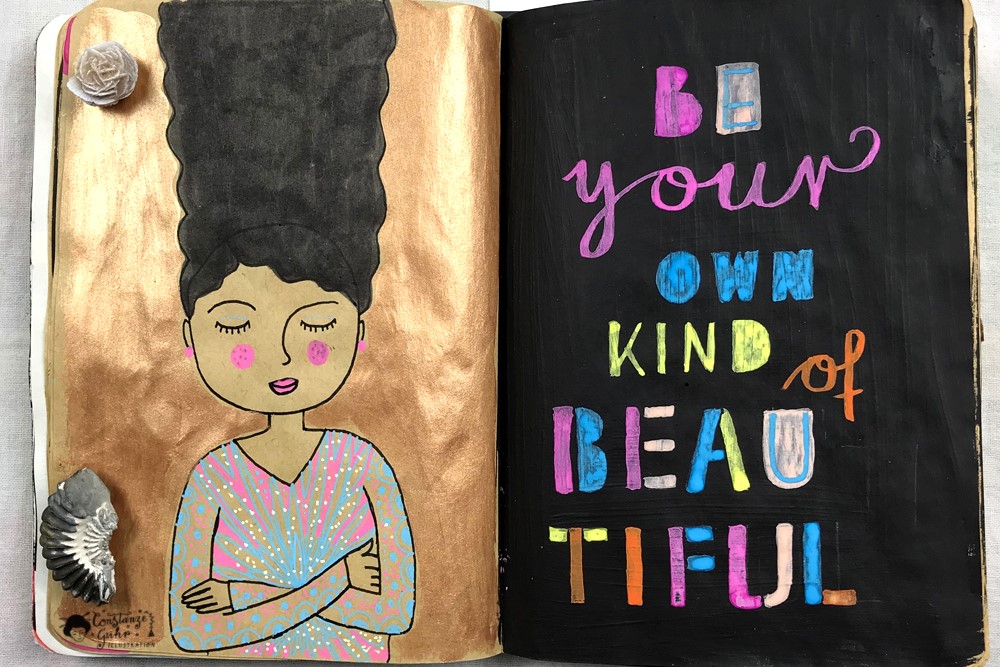 BE
your
OWN
KIND
of
BEAU
TIFUL
Constanze
Guhr
ILLUSTRATION